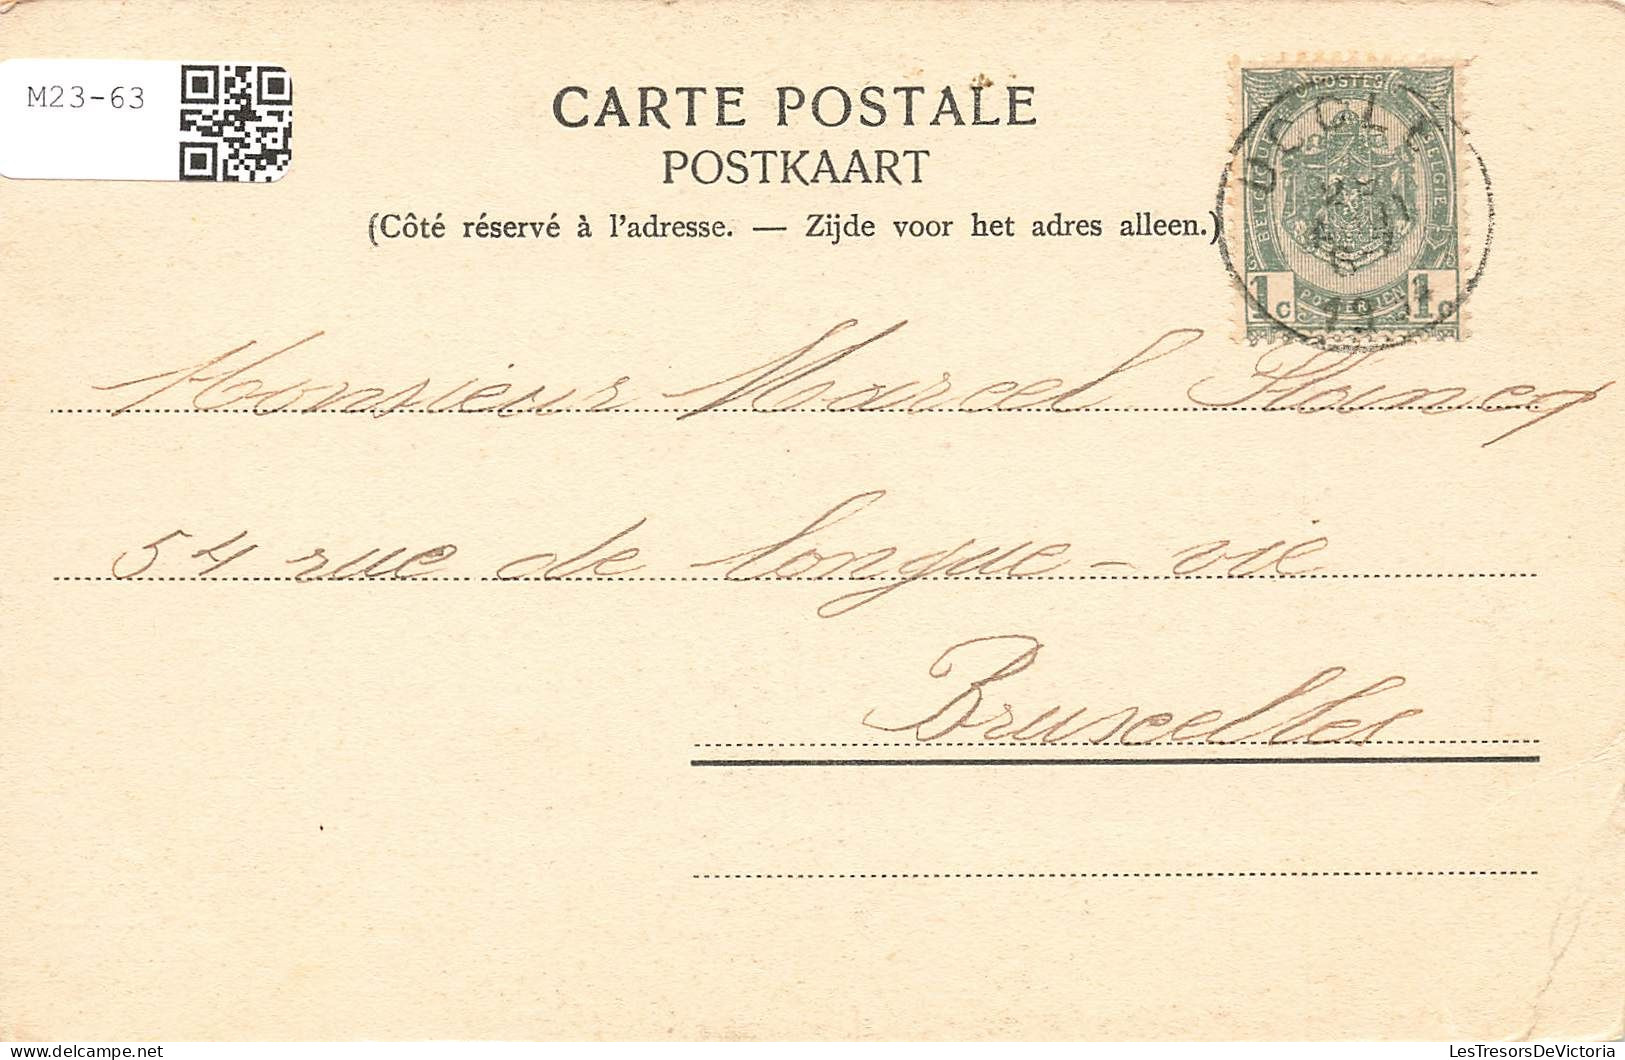 M23-63
CARTE POSTALE
POSTKAART
(Côté réservé à l'adresse. — Zijde voor het adres alleen.)
POSTES
BELGIQUE BELGIE
UCCLE
1c 1c
Monsieur Marcel
54 rue de longue-vie
Bruxelles
LesTresorsDeVictoria